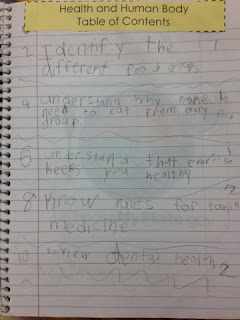 Health and Human Body
Table of Contents
2 Identify the 1
different food groups
4 understand why
need to eat from any
group.
6 understand that exercise 1
keeps you healthy
8 Know rules for taking 2
medicine
10 review dental health 2